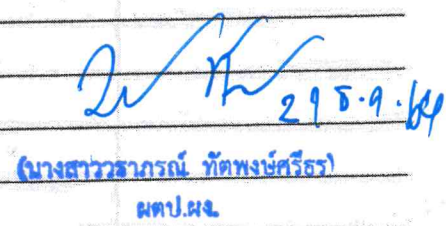 29 ธ.ค. 64
(นางสาววราภรณ์ ทัตพงษ์ศรีธร)
ผตป.ผง.